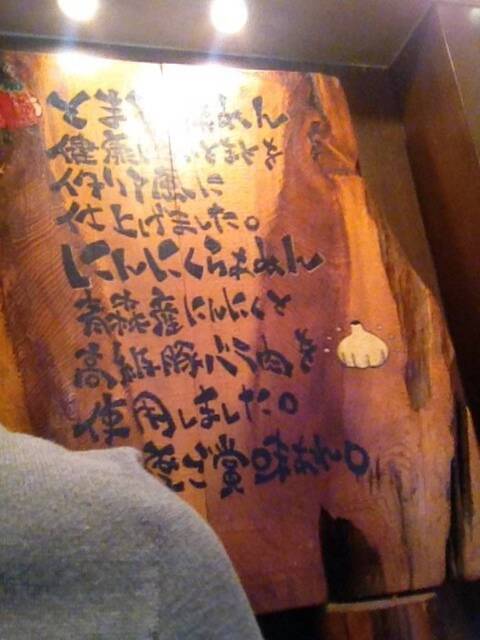 とまとらぁめん
健康にいいとまとを
イタリア風に
仕上げました。
にんにくらぁめん
青森産にんにくと
高級豚バラ肉を
使用しました。
ご賞味あれ。